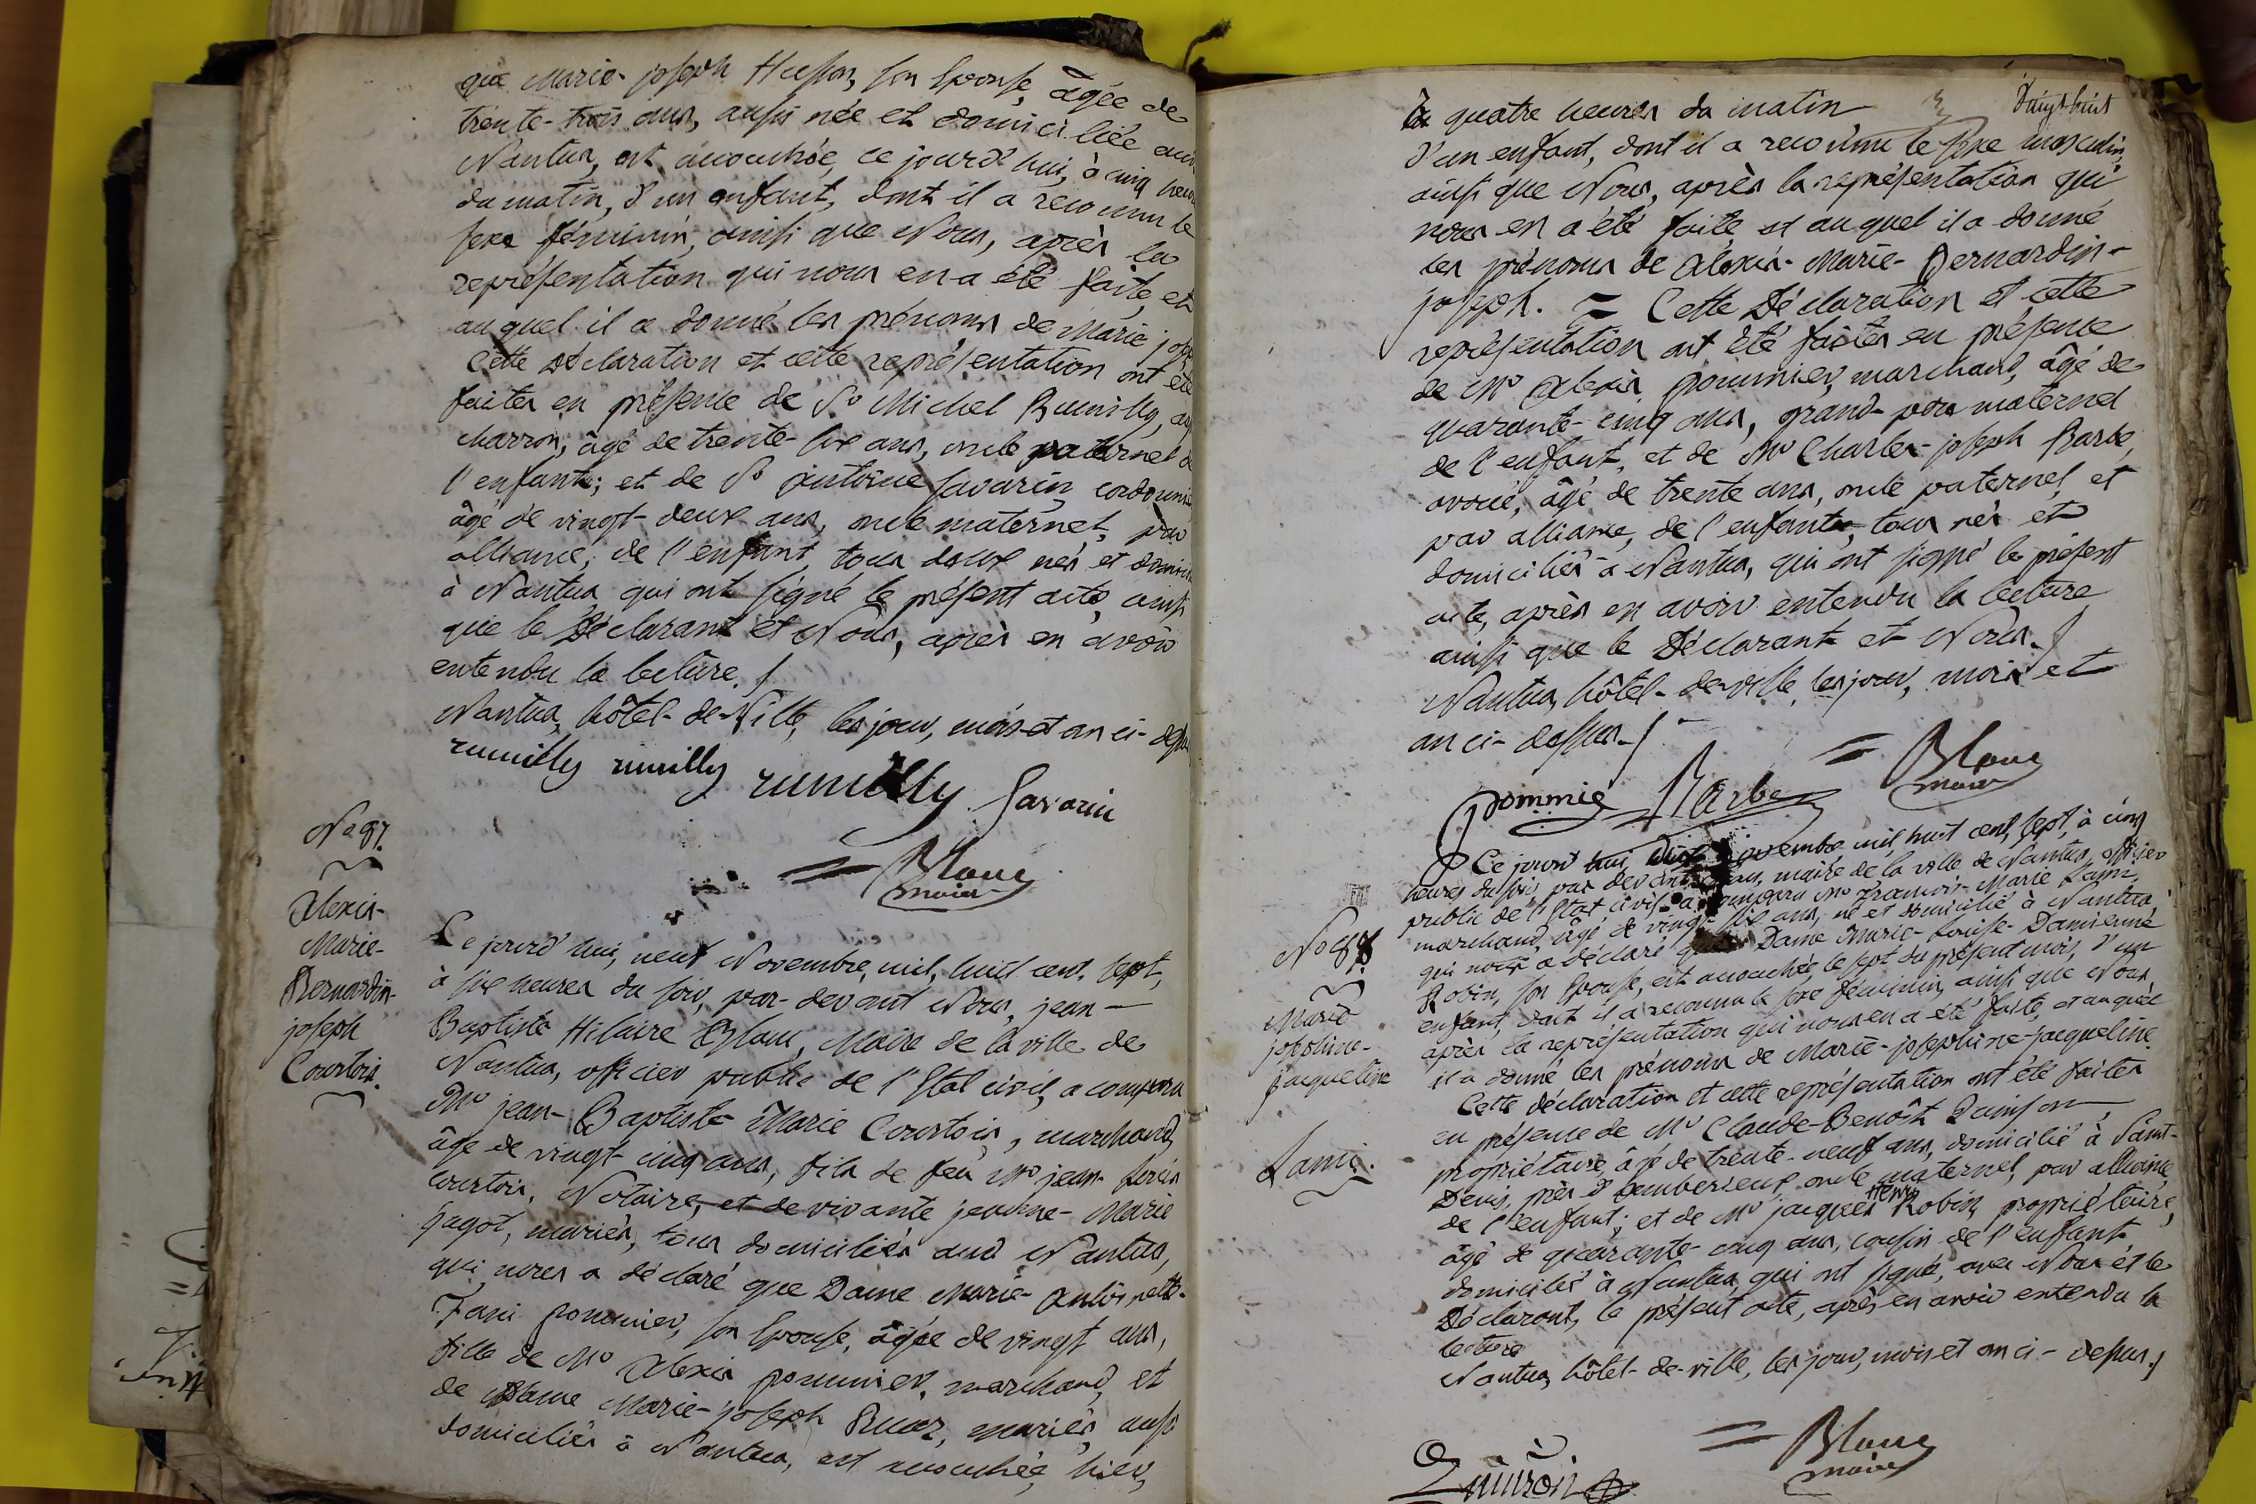 que Marie-joseph Husson, son Epouse, âgée de
trente-trois ans, aussi née et domiciliée audit
Nantua, est accouchée, ce jourd'hui, à cinq heures
du matin, d'un enfant, dont il a reconnu le
sexe féminin, ainsi que Nous, après la
représentation qui nous en a été faite, et
auquel il a donné les prénoms de Marie jose
Cette Déclaration et cette représentation ont été
faites en présence de Sr Michel Rumilly,
charron, âgé de trente-six ans, oncle paternel de
l'enfant; et de Sr antoine Savarin, cordonnier
âgé de vingt-deux ans, oncle maternel, par
alliance, de l'enfant, tous deux nés et domiciliés
à Nantua qui ont signé le présent acte, ainsi
que le Déclarant et Nous, après en avoir
entendu la lecture./
Nantua, hôtel-de-Ville, les jour, mois et an ci-dessus
rumilly rumilly rumilly Savarin
= Blanc
maire
No 87.
Alexis-
Marie-
Bernardin-
joseph
Courtois.
Ce jourd'hui, neuf Novembre, mil, huit cent, sept,
à six heures du soir, par-devant Nous, jean-
Baptiste Hilaire Blanc, Maire de la ville de
Nantua, officier public de l'Etat civil, a comparu
Mr jean-Baptiste Marie Courtois, marchand,
âgé de vingt-cinq ans, fils de feu Mr jean-
Courtois, Notaire, et de vivante jeanne-Marie
jagot, mariés, tous domiciliés audit Nantua,
qui nous a déclaré que Dame Marie-Antoinette-
Fani pommier, son Epouse, âgée de vingt ans,
fille de Mr Alexis pommier, marchand, et
de Dame Marie-joseph mariés, aussi
domiciliés à Nantua, est accouchée, hier,
Vingt-huit
à quatre heures du matin
d'un enfant, dont il a reconnu le sexe masculin,
ainsi que Nous, après la représentation qui
nous en a été faite et auquel il a donné
les prénoms de Alexis-Marie-Bernardin-
joseph. = Cette Déclaration et cette
représentation ont été faites en présence
de Mr Alexis pommier, marchand, âgé de
quarante-cinq ans, grand-père maternel
de l'enfant, et de Mr Charles-joseph Barbe,
avoué, âgé de trente ans, oncle paternel, et
par alliance, de l'enfant, tous nés et
domiciliés à Nantua, qui ont signé le présent
acte, après en avoir entendu la lecture
ainsi que le Déclarant et Nous./
Nantua, hôtel-de-ville, les jour, mois et
an ci-dessus./
Pommié Barbe = Blanc
maire
No 88
Marie
joséphine-
jacqueline
Lami.
Ce jourd'hui, dix Novembre mil, huit cent, sept, à cinq
heures du soir, par devant Nous, maire de la ville de Nantua, officier
public de l'Etat civil, a comparu Mr François-Marie Lami,
marchand, âgé de vingt-six ans, né et domicilié à Nantua,
qui nous a déclaré que Dame Marie-Louise-Damienne
Robin, son Epouse, est accouchée, le sept du présent mois, d'un
enfant, dont il a reconnu le sexe féminin, ainsi que Nous,
après la représentation qui nous en a été faite, et auquel
il a donné les prénoms de Marie-joséphine-jacqueline.
Cette déclaration et cette représentation ont été faites
en présence de Mr Claude-Benoît Quinson,
propriétaire, âgé de trente-neuf ans, domicilié à Saint-
Denis, près d'amberieux, oncle maternel, par alliance,
de l'enfant; et de Mr jacques Henry Robin, propriétaire,
âgé de quarante-cinq ans, cousin de l'enfant,
domicilié à Nantua, qui ont signé, avec Nous et le
Déclarant, le présent acte, après en avoir entendu la
lecture
Nantua, hôtel-de-ville, les jour, mois et an ci-dessus./
= Blanc
maire
Quinson